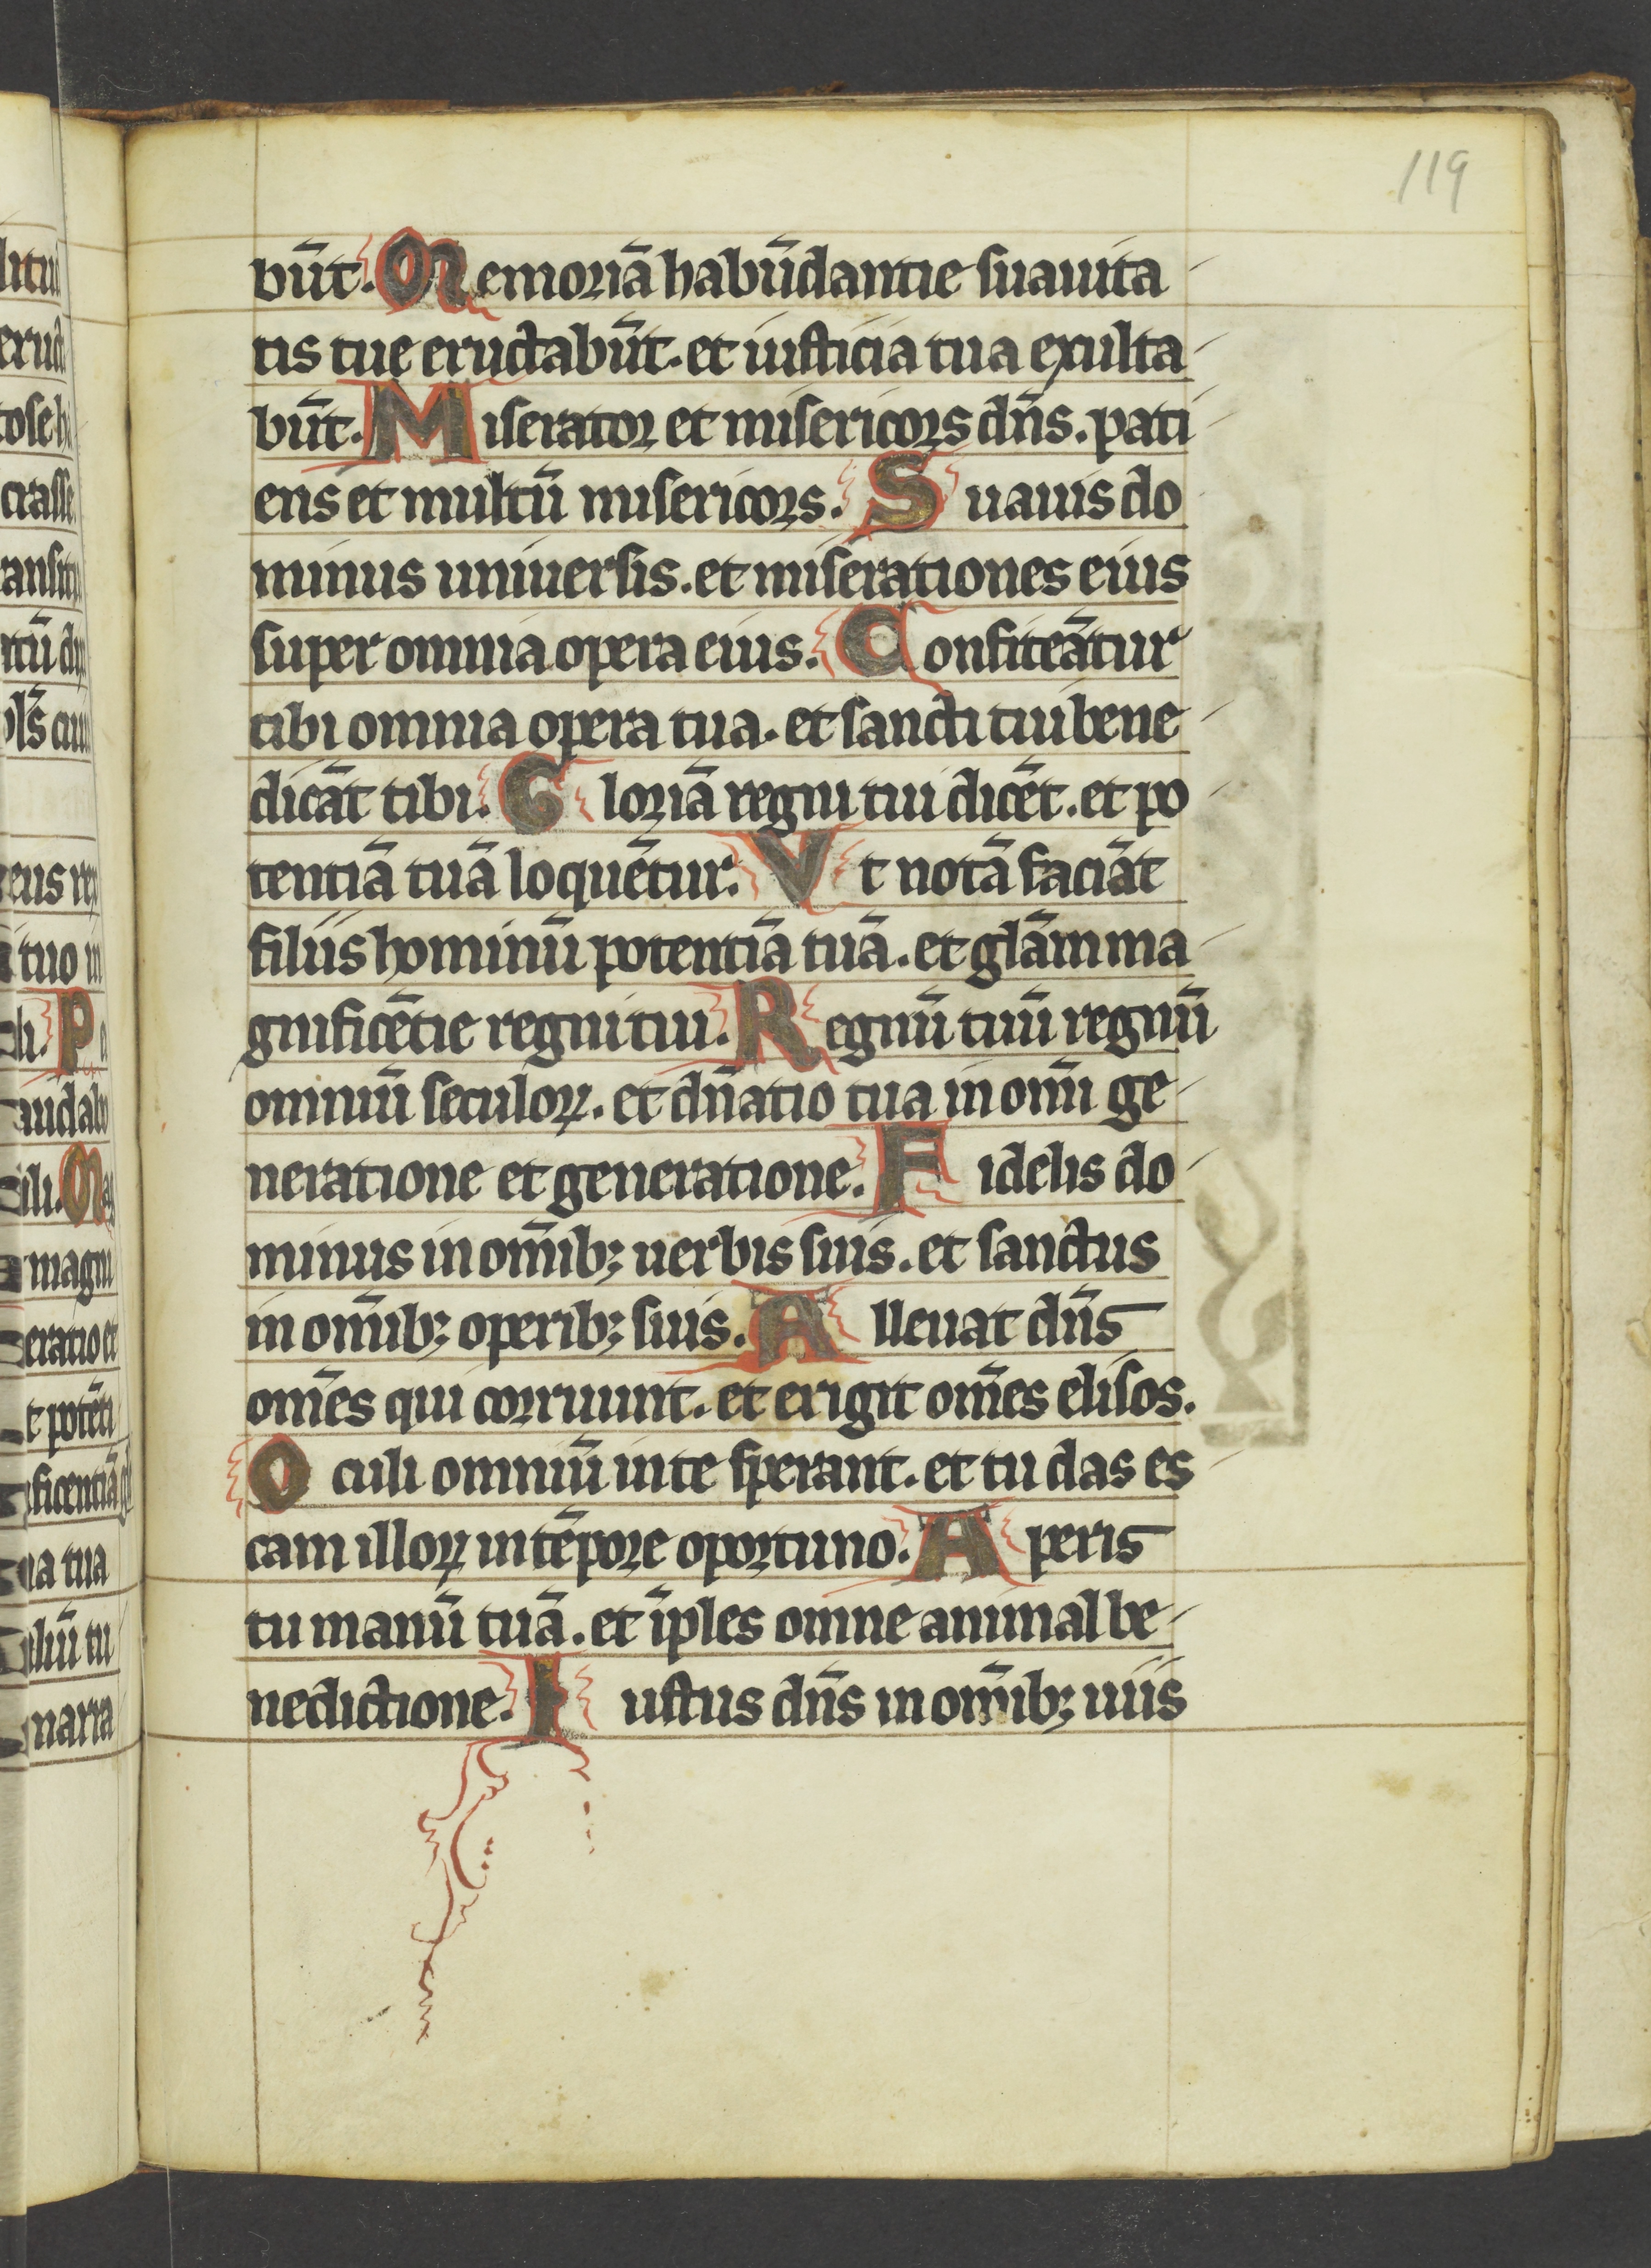 119
būt. Memoriā habūdantie suauita
tis tuę eructabūt. et iusticia tua exulta
būt. Miserator et misericors dn̄s. pati
ens et multū misericors. Suauis do
minus uniuersis. et miserationes eius
super omnia opera eius. Confiteātur
tibi omnia opera tua. et sancti tui bene
dicāt tibi. Gloriā regni tui dicēt. et po
tentiā tuā loquētur. Vt notā faciāt
filiis hominū potentiā tuā. et glām ma
gnificētie regni tui. Regnū tuū regnū
omniū seculoꝝ. et dn̄atio tua in om̄i ge
neratione et generatione. Fidelis do
minus in om̄ibꝫ uerbis suis. et sanctus
in om̄ibꝫ operibꝫ suis. Alleuat dn̄s
om̄es qui corruunt. et erigit om̄es elisos.
Oculi omniū in te sperant. et tu das es
cam illoꝝ in tēpore oportuno. Aperis
tu manū tuā. et īples omne animal be
nedictione. Iustus dn̄s in om̄ibꝫ uiis